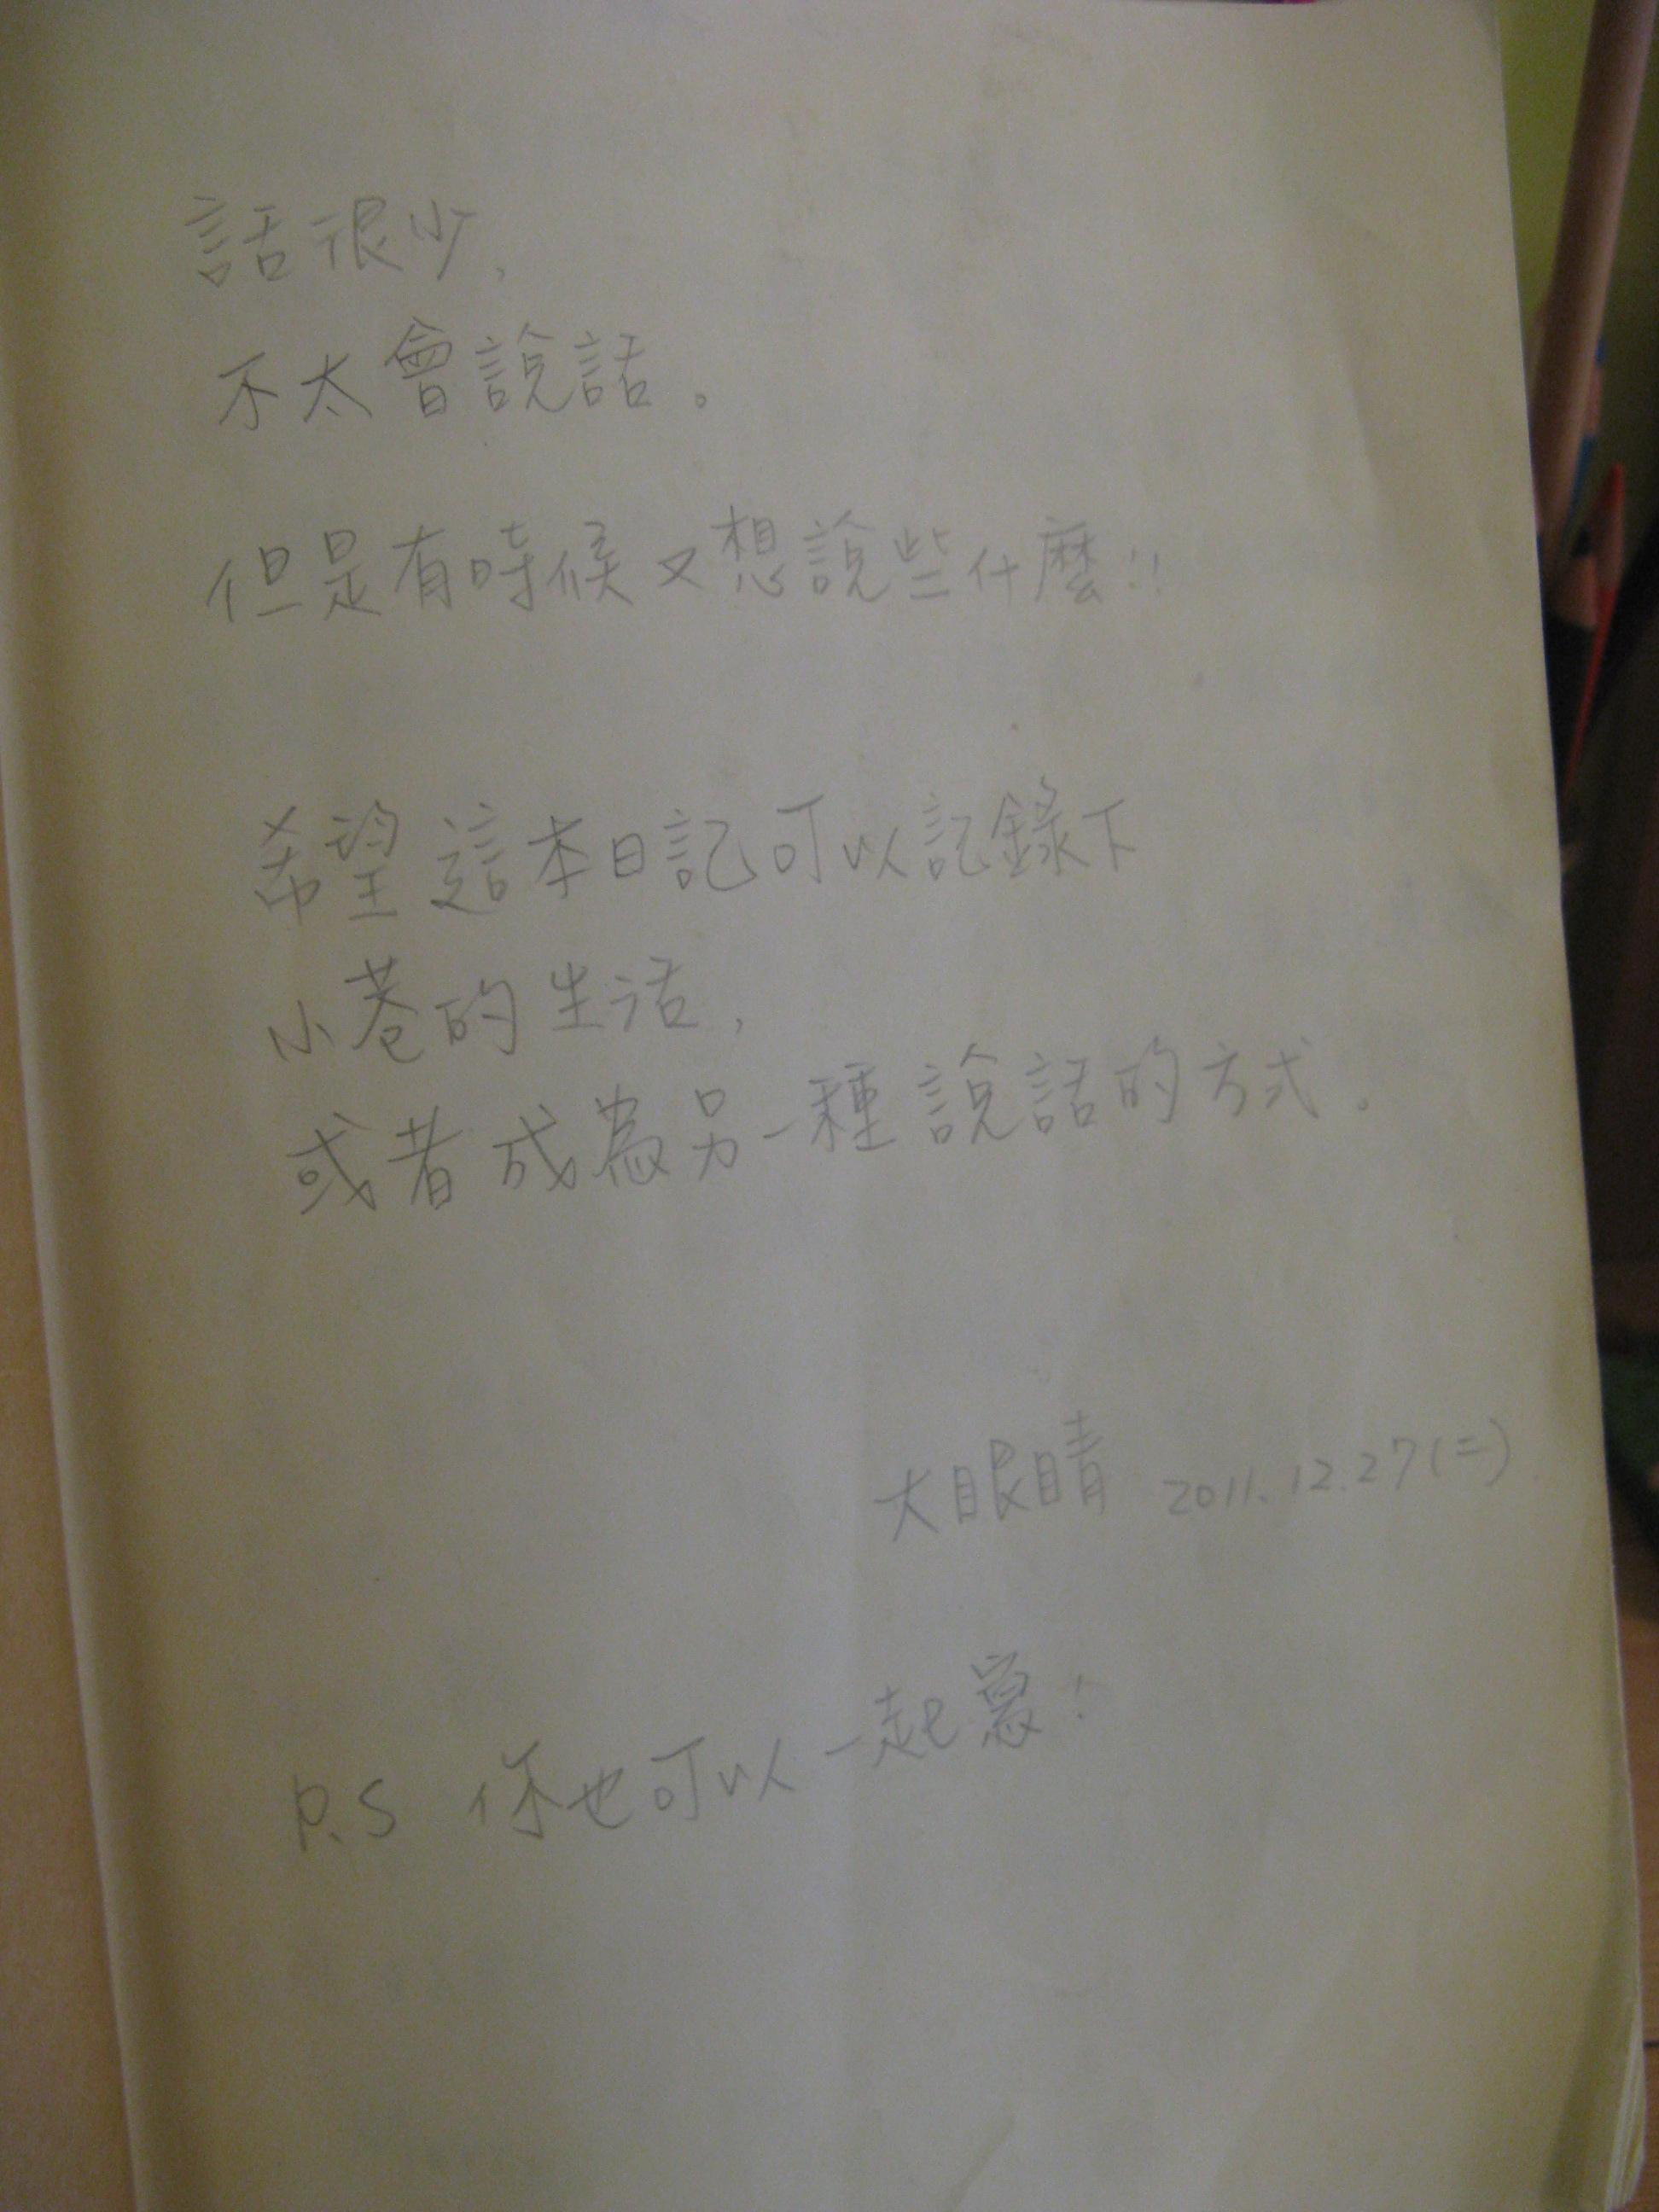 話很少,
不太會說話。
但是有時候又想說些什麼!!
希望這本日記可以記錄下
小巷的生活,
或者成為另一種說話的方式.
大眼睛 2011.12.27(二)
P.S 你也可以一起寫!